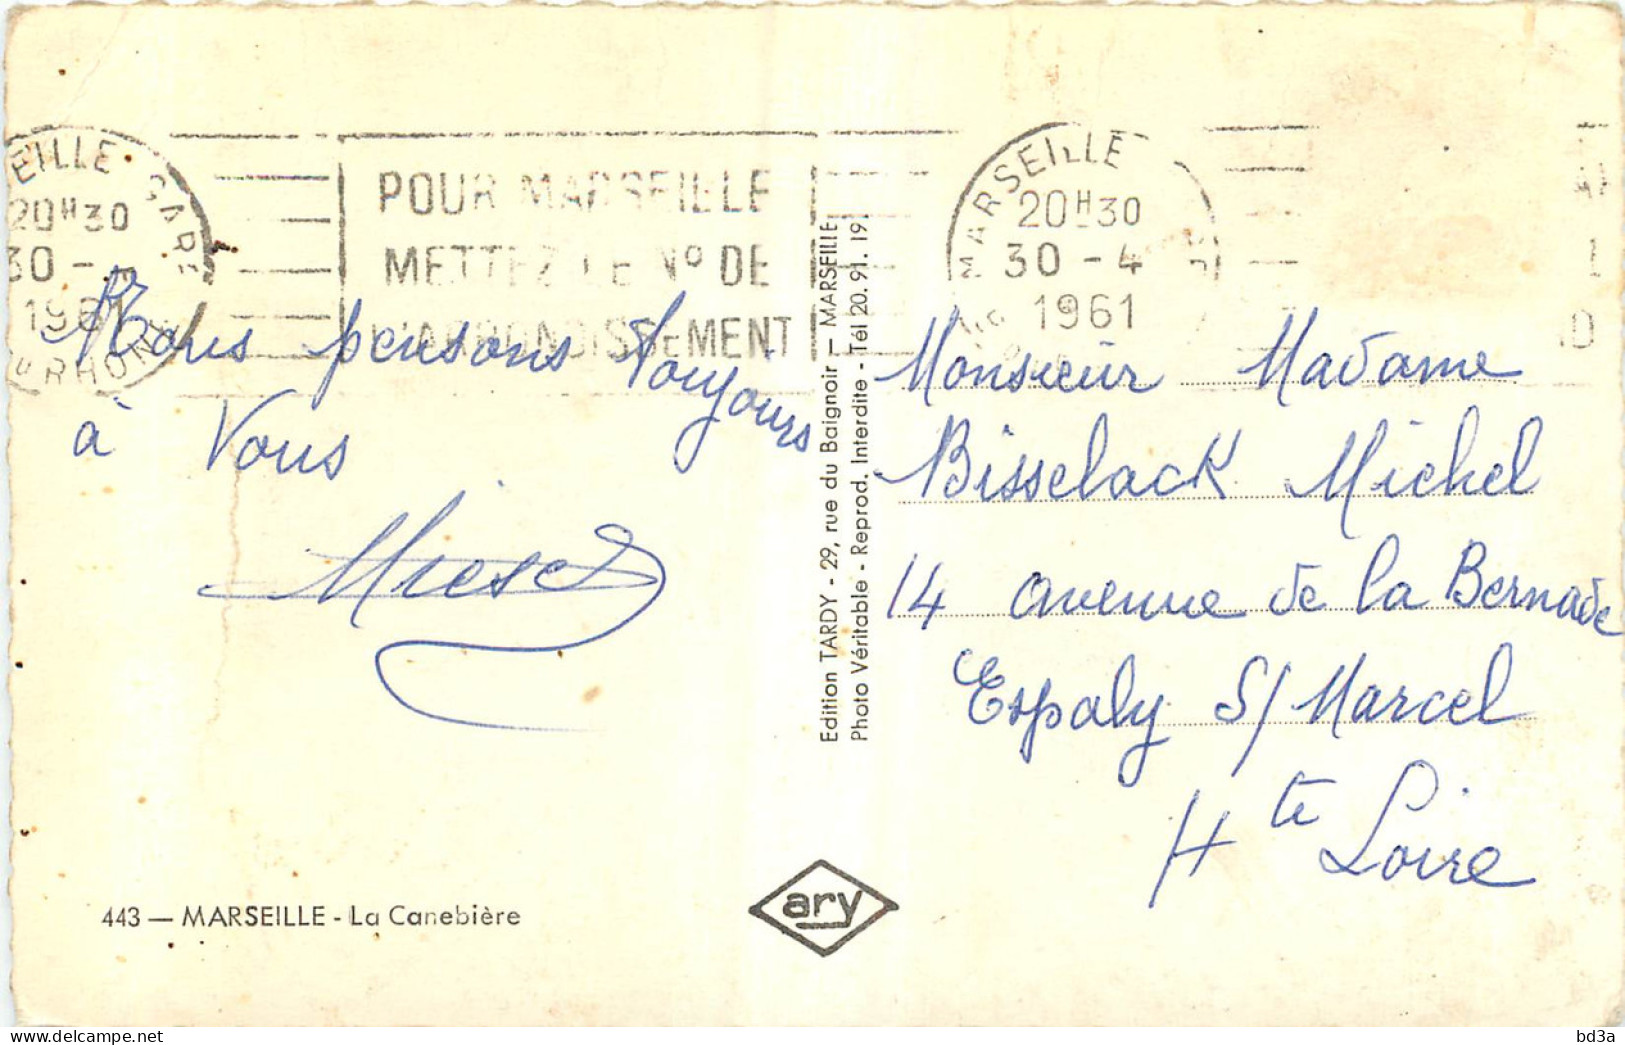 EILLE GARE
20H30
30 - 4
1961
RHON
POUR MARSEILLE
METTEZ LE No DE
L'ARRONDISSEMENT
MARSEILLE
20H30
30 - 4
1961
Nous pensons toujours
à Vous
443 — MARSEILLE - La Canebière
Edition TARDY - 29, rue du Baignoir — MARSEILLE
Photo Véritable - Reprod. Interdite - Tél 20.91.19
ary
Monsieur Madame
Bisselack Michel
14 avenue de la Bernade
Espaly S/ Marcel
Hte Loire
delcampe.net
bd3a